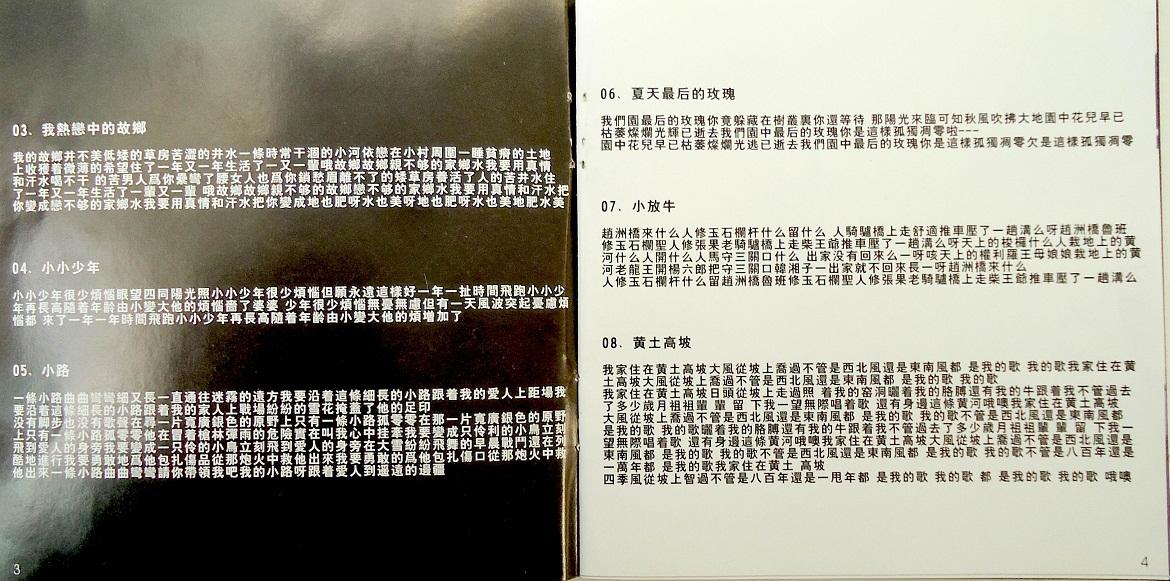 03. 我熱戀中的故鄉
我的故鄉并不美低矮的草房苦澀的井水一條時常干涸的小河依戀在小村周圍一睡貧瘠的土地
上收獲着微薄的希望住了一年又一年生活了一又一輩哦故鄉故鄉親不够的家鄉水我要用真情
和汗水喝不干 的苦男人爲你纍彎了腰女人也爲你鎖愁眉離不了的矮草房養活了人的苦井水住
了一年又一年生活了一輩又一輩 哦故鄉故鄉親不够的故鄉戀不够的家鄉水我要用真情和汗水把
你變成戀不够的家鄉水我要用真情和汗水把你變成地也肥呀水也美呀地也肥呀水也美地肥水美
04. 小小少年
小小少年很少煩惱眼望四同陽光照小小少年很少煩惱但願永遠這樣好一年一扯時間飛跑小小少
年再長高隨着年齡由小變大他的煩惱嗇了婆婆 少年很少煩惱無憂無慮但有一天風波突起憂慮煩
惱都 來了一年一年時間飛跑小小少年再長高隨着年齡由小變大他的煩增加了
05. 小路
一條小路曲曲彎彎細又長一直通往迷霧的遠方我要沿着這條細長的小路跟着我的愛人上距場我
要沿着這條細長的小路跟着我的家人上戰場紛紛的雪花掩蓋了他的足印
没有脚步也没有歌聲在尋一片寬廣銀色的原野上只有一條小路零零在那一片寬廣銀色的原野
上只有一條小路孤零零他在冒着槍林彈雨的危險實在叫我心中挂牽我要變成伶利的小鳥立刻
飛到愛人的身旁我要變成一只伶的小鳥立刻飛到愛人的身旁在大雪紛紛飛舞的早晨戰鬥還在列
酷地進行我要勇敢地爲他包扎傷的品從那炮火中救他出來我要勇敢的爲他包扎傷口從那炮火中救
他出來一條小路曲曲彎彎請你帶領我吧我的小路呀跟着愛人到遥遠的邊疆
3
06. 夏天最后的玫瑰
我們園最后的玫瑰你竟躲藏在樹叢裏你還等待 那陽光來臨可知秋風吹拂大地園中花兒早已
枯萎燦爛光輝已逝去我們園中最后的玫瑰你是這樣孤獨凋零啦---
園中花兒早已枯萎燦爛光逃已逝去我們園中最后的玫瑰你是這樣孤獨凋零欠是這樣孤獨凋零
07. 小放牛
趙洲橋來什么人修玉石欄杆什么留什么 人騎驢橋上走舒適推車壓了一趟溝么呀趙洲橋魯班
修玉石欄聖人修張果老騎驢橋上走柴王爺推車壓了一趟溝么呀天上的梭欏什么人栽地上的黄
河什么人開什么人馬守三關口什么 出家没有回來么一呀咳天上的權利羅王母娘娘栽地上的黄
河老龍王開楊六郎把守三關口韓湘子一出家就不回來長一呀趙洲橋來什么
人修玉石欄什么留趙洲橋魯班修玉石欄聖人修張果老騎驢橋上走柴王爺推車壓了一趟溝么
08. 黄土高坡
我家住在黄土高坡大風從坡上喬過不管是西北風還是東南風都 是我的歌 我的歌我家住在黄
土高坡大風從坡上喬過不管是西北風還是東南風都 是我的歌 我的歌
我家住在黄土高坡日頭從坡上走過照 着我的窑洞曬着我的胳膊還有我的牛跟着我不管過去
了多少歲月祖祖輩 輩 留 下我一望無際唱着歌 還有身邊這條黄河哦噢我家住在黄土高坡
大風從坡上喬過不管是西北風還是東南風都 是我的歌 我的歌不管是西北風還是東南風都
是我的歌 我的歌曬着我的胳膊還有我的牛跟着我不管過去了多少歲月祖祖輩 輩 留 下我一
望無際唱着歌 還有身邊這條黄河哦噢我家住在黄土高坡大風從坡上喬過不管是西北風還是
東南風都 是我的歌 我的歌不管是西北風還是東南風都 是我的歌 我的歌不管是八百年還是
一萬年都 是我的歌我家住在黄土 高坡
四季風從坡上智過不管是八百年還是一甩年都 是我的歌 我的歌 都 是我的歌 我的歌 哦噢
4